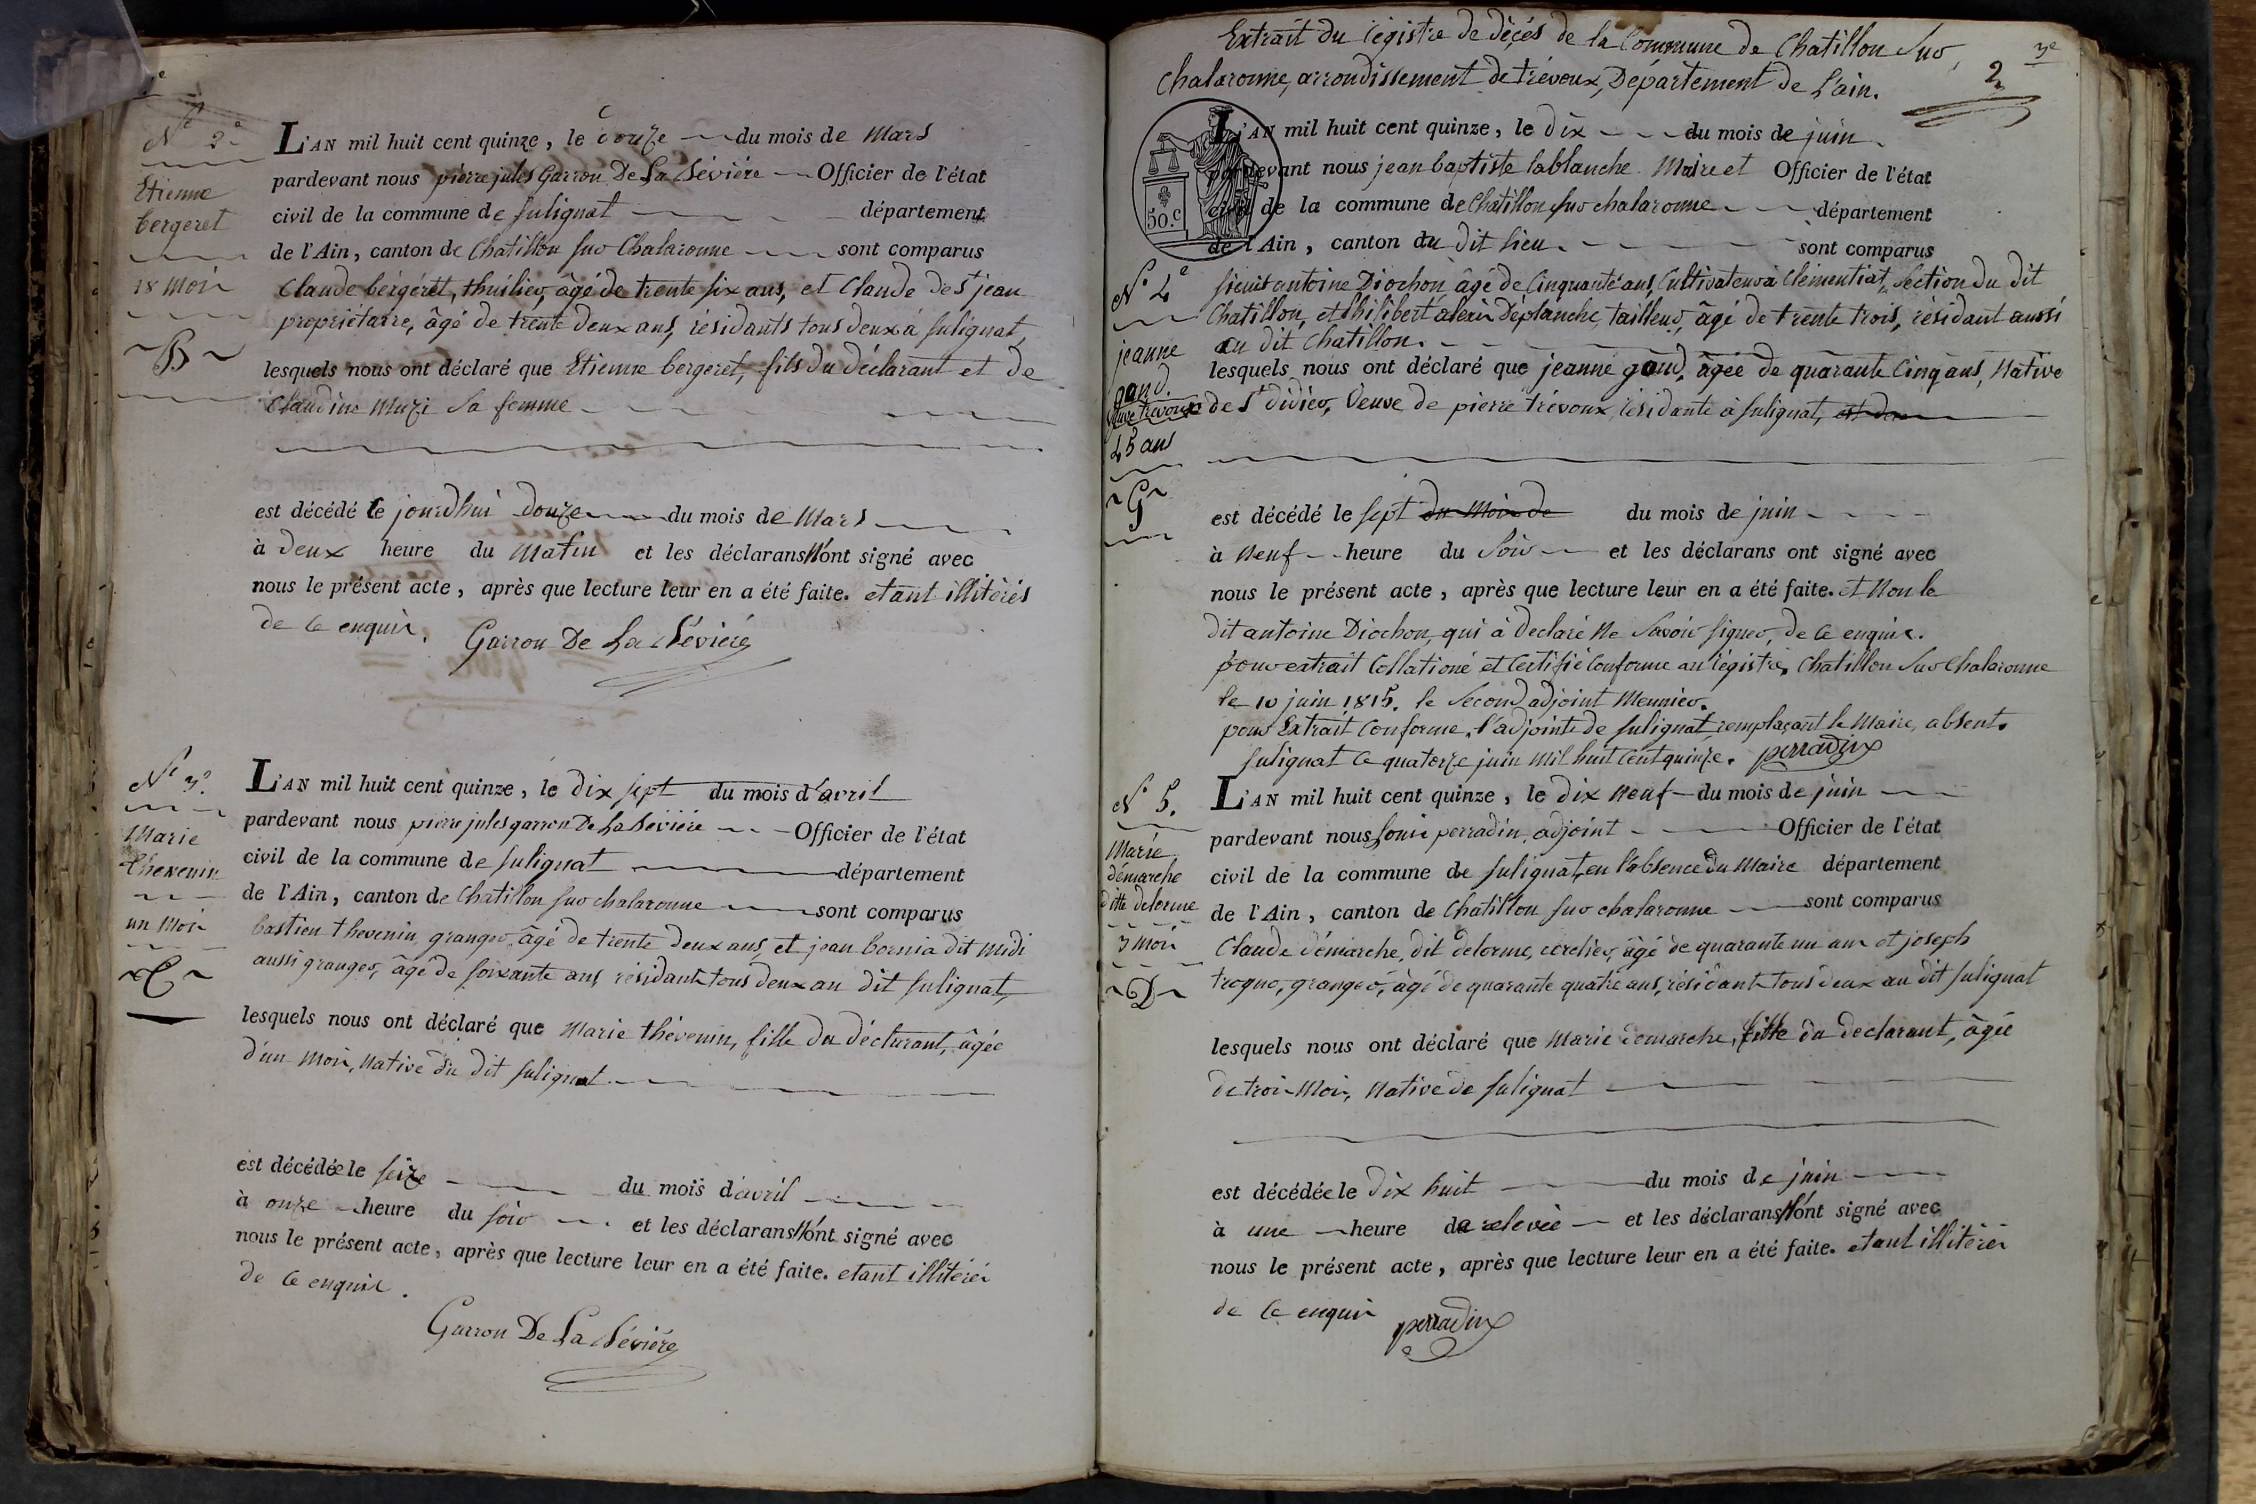 N.° 2.e
Etienne
bergeret
18 Mois
B
L'AN mil huit cent quinze, le douze du mois de Mars
pardevant nous pierre jules Garron De La Séviére Officier de l'état
civil de la commune de Sulignat département
de l'Ain, canton de Chatillon sur Chalaronne sont comparus
Claude bérgerét, thuilier, âgé de trente six ans, et Claude de St jean
propriétaire, âgé de trente deux ans, résidants tous deux à Sulignat,
lesquels nous ont déclaré que Etienne bergeret, fils du déclarant et de
Claudine Muzi sa femme
est décédé le jourdhui douze du mois de Mars
à deux heure du Matin et les déclarans N'ont signé avec
nous le présent acte, après que lecture leur en a été faite. etant illitérés
de ce enquis. Garron De La Séviére
N.° 3.e
Marie
thevenin
un Mois
L'AN mil huit cent quinze, le dix sept du mois d'avril
pardevant nous pierre jules garron De La Séviére Officier de l'état
civil de la commune de Sulignat département
de l'Ain, canton de Chatillon sur chalaronne sont comparus
bastien thevenin, granger, âgé de trente deux ans, et jean bernia dit midi
aussi granger, âgé de soixante ans, résidants tous deux au dit Sulignat,
lesquels nous ont déclaré que Marie thévenin, fille du déclarant, âgée
d'un mois, native du dit Sulignat.
est décédée le seize du mois d'avril
à onze heure du soir et les déclarans N'ont signé avec
nous le présent acte, après que lecture leur en a été faite. etant illitérés
de ce enquis.
Garron De La Séviére
Extrait du régistre de décés de la Commune de Chatillon sur 3e
Chalaronne, arrondissement de trévoux, Département de L'ain. 2
50.c
L'AN mil huit cent quinze, le dix du mois de juin
pardevant nous jean baptiste lablanche Maire et Officier de l'état
civil de la commune de Chatillon sur chalaronne département
de l'Ain, canton du dit lieu. sont comparus
N.° 4.e
jeanne
gand.
veuve trévoux
45 ans
G
sieurs antoine Diochon âgé de Cinquante ans, Cultivateur à Clémentiat, section du dit
Chatillon, et philibert Déplanche, tailleur, âgé de trente trois, résidant aussi
au dit Chatillon.
lesquels nous ont déclaré que jeanne gand, âgée de quarante Cinq ans, Native
de St didier, Veuve de pierre trévoux, résidante à Sulignat,
est décédé le sept du Mois de du mois de juin
à Neuf heure du Soir et les déclarans ont signé avec
nous le présent acte, après que lecture leur en a été faite. et Non le
dit antoine Diochon, qui à declaré Ne Savoir signer, de ce enquis.
pour extrait Collationé et Certifié conforme au régistre, Chatillon sur Chalaronne
le 10 juin 1815. le Second adjoint Meunier.
pour Extrait Conforme, l'adjoint de Sulignat, remplaçant le Maire, absent.
Sulignat ce quatorze juin Mil huit Cent quinze. perradin
N.° 5.
Marie
démarche
ditte delorme
3 Mois
D
L'AN mil huit cent quinze, le dix Neuf du mois de juin
pardevant nous Louis perradin, adjoint Officier de l'état
civil de la commune de Sulignat, en l'absence du Maire département
de l'Ain, canton de Chatillon sur chalaronne sont comparus
Claude démarche, dit delorme, cerclier, âgé de quarante un ans et joseph
granger, âgé de quarante quatre ans, résidants tous deux au dit Sulignat
lesquels nous ont déclaré que Marie démarche, fille du declarant, âgée
de trois Mois, Native de Sulignat
est décédée le dix huit du mois de juin
à une heure de relevée et les déclarans N'ont signé avec
nous le présent acte, après que lecture leur en a été faite. etant illitérés
de ce enquis perradin